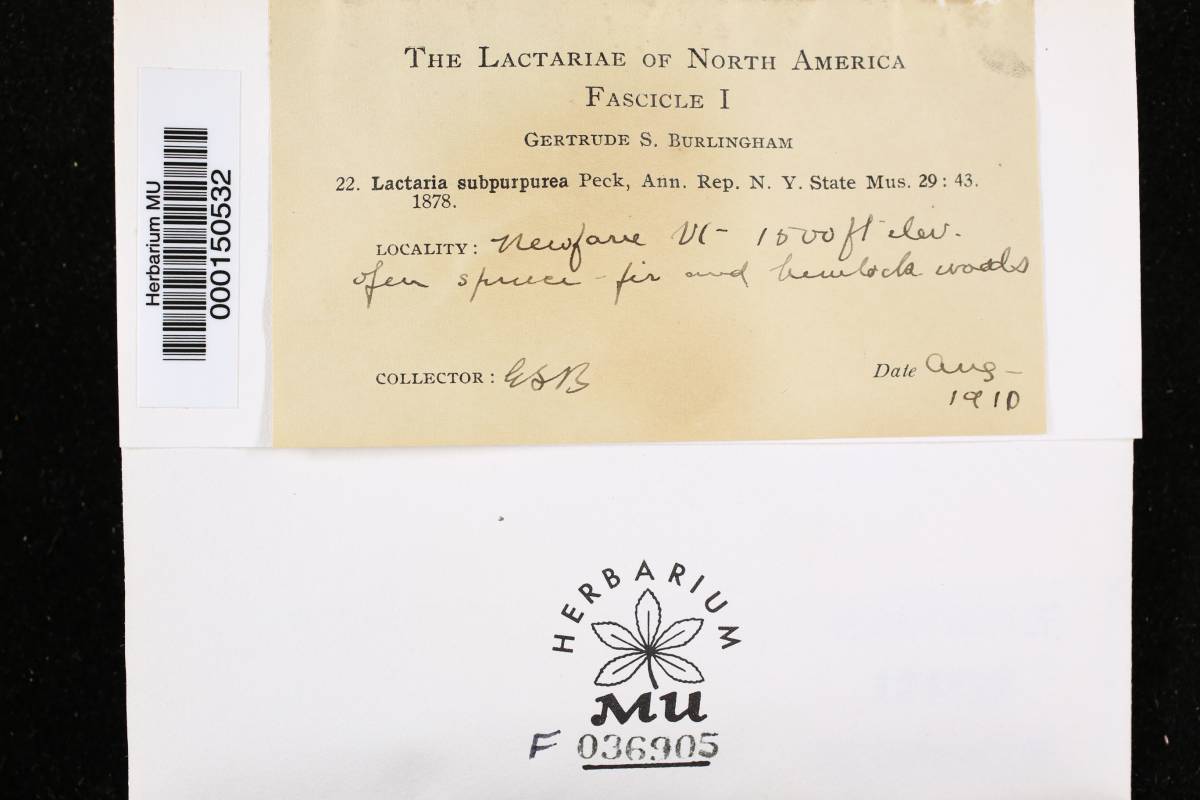 THE LACTARIAE OF NORTH AMERICA
FASCICLE I
GERTRUDE S. BURLINGHAM
22. Lactaria subpurpurea Peck, Ann. Rep. N. Y. State Mus. 29: 43.
1878.
LOCALITY: Newfane Vt- 1500 ft elev.
open spruce-fir and hemlock woods
COLLECTOR: GSB
Date Aug-
1910
Herbarium MU
000150532
HERBARIUM
MU
F 036905